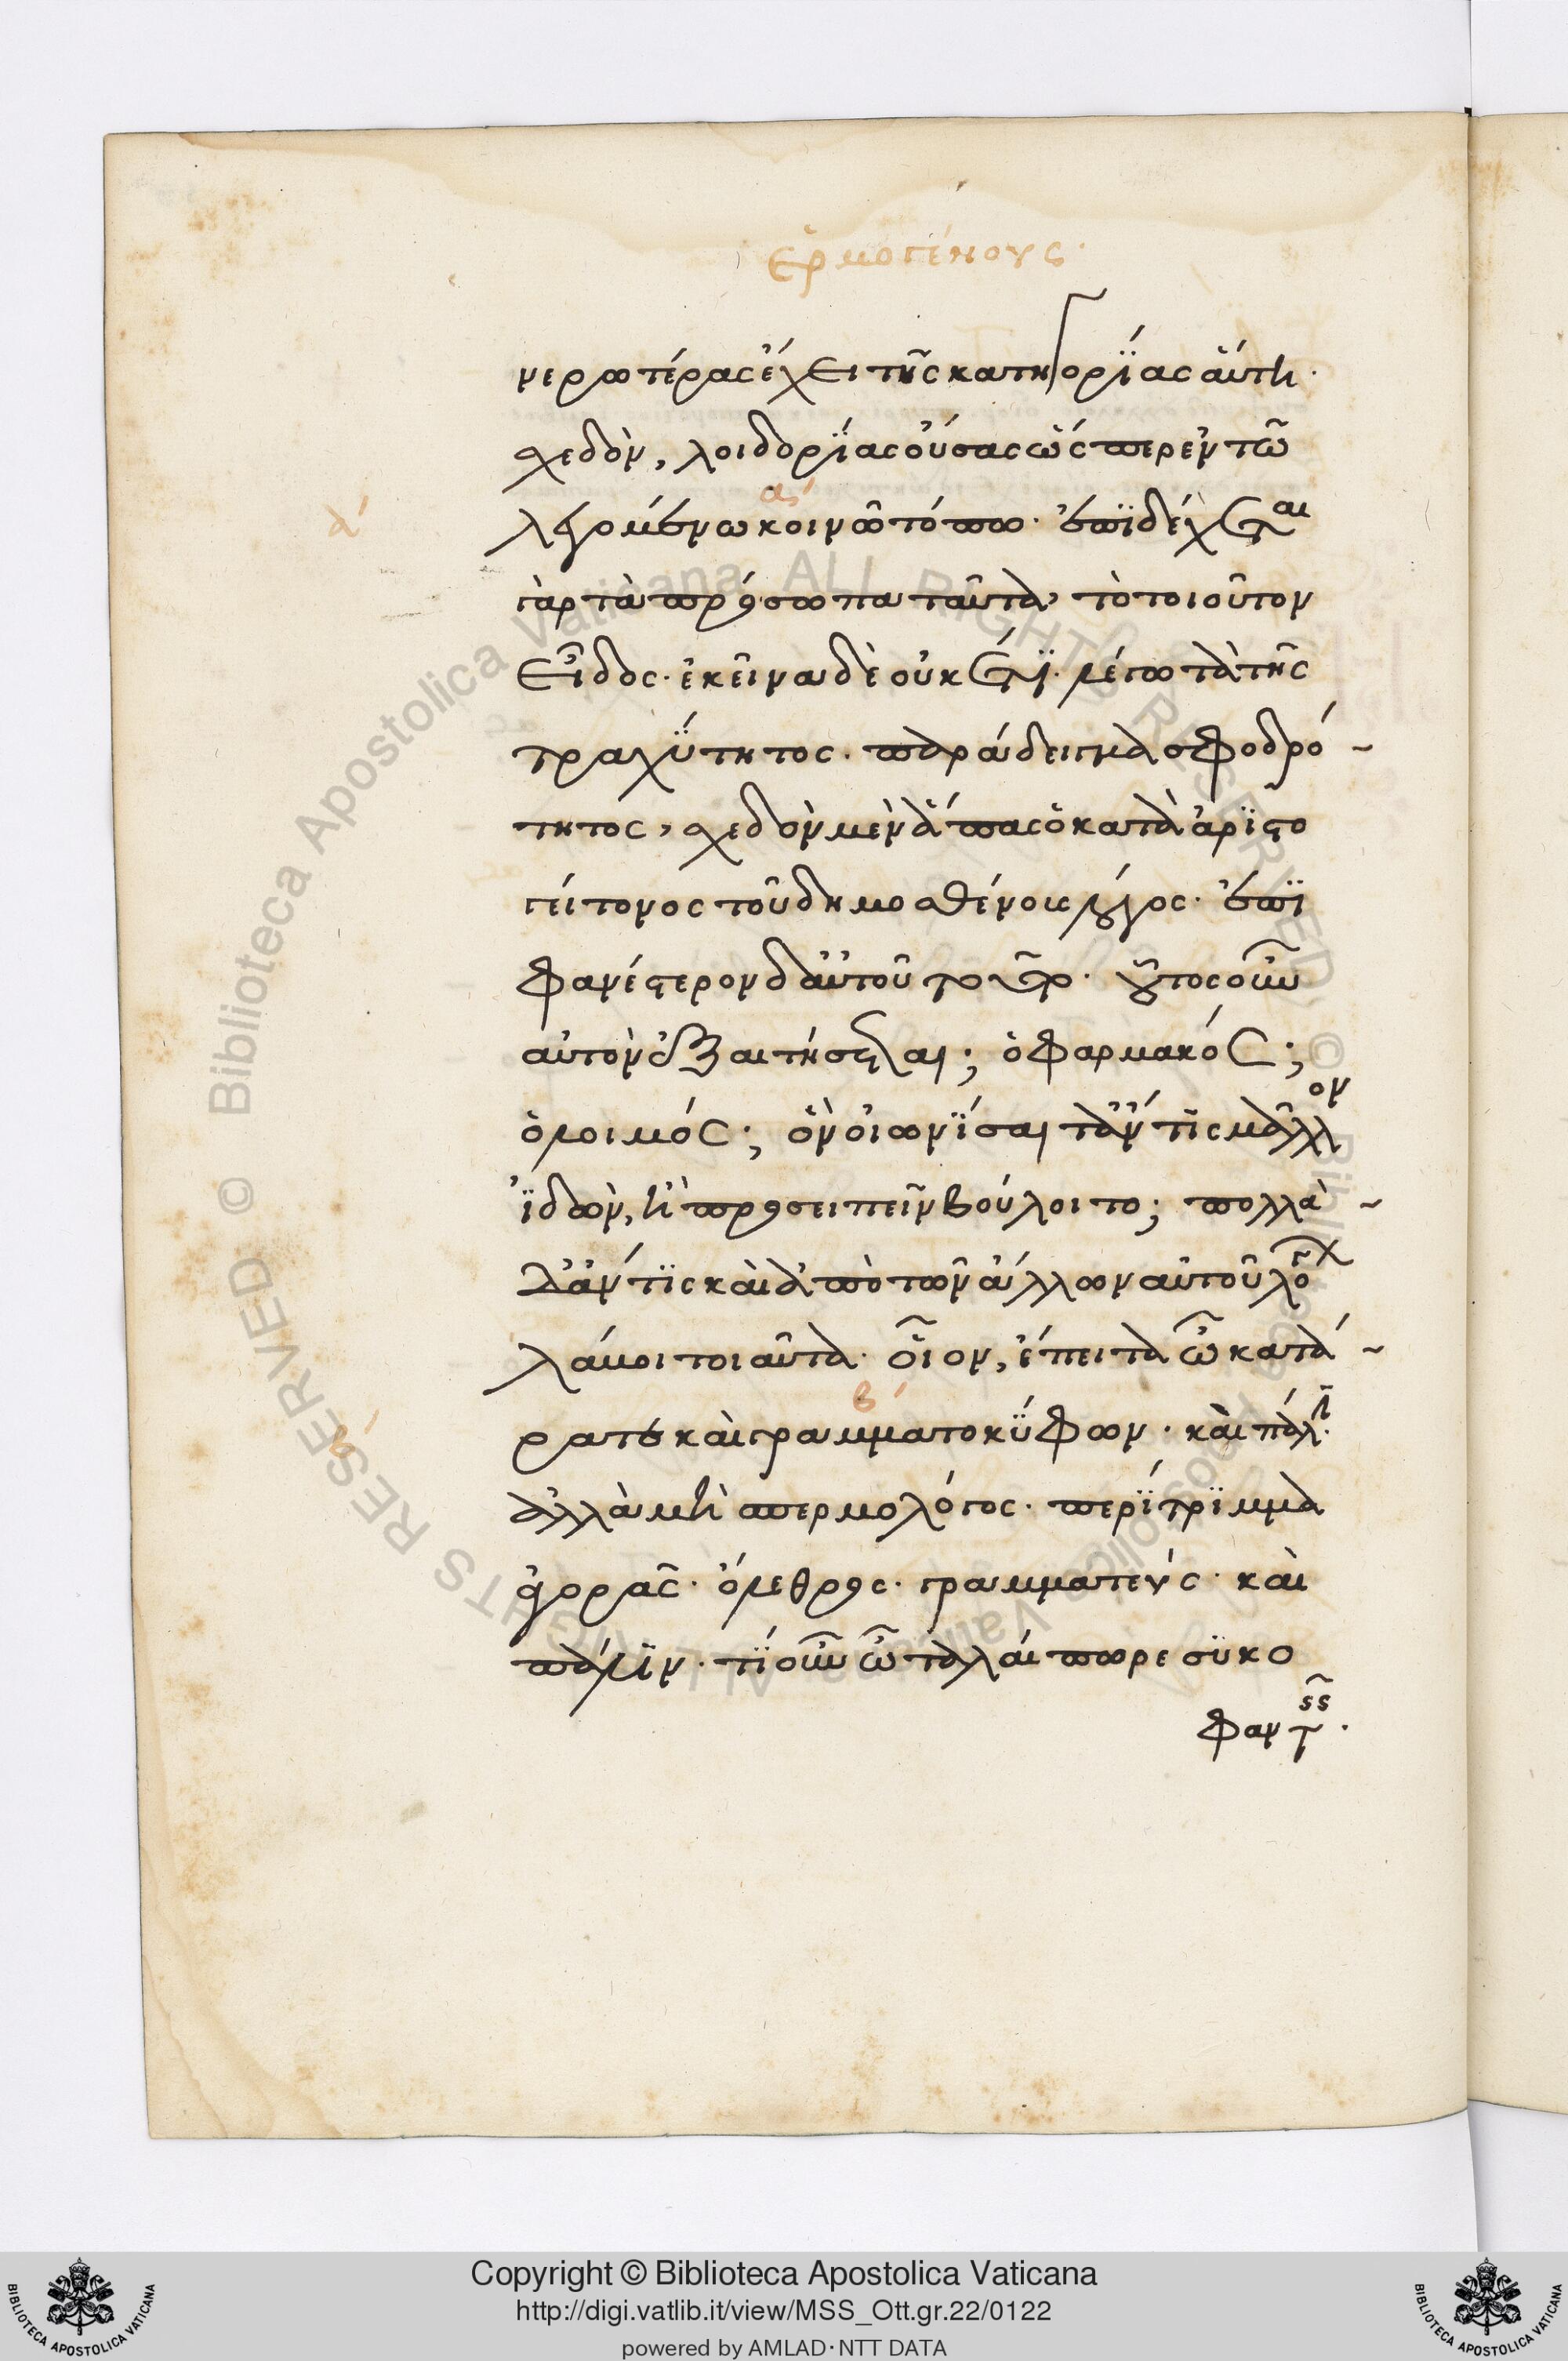 ἑρμογένους.
νερωτέρας ἔχει τῆς κατηγορΐας αὕτη.
σχεδὸν, λοιδορΐας οὔσας ὥς περ ἐν τῶ
α
α
λεγομένω κοινῶ τόπω. ἐπϊδέχεται
γὰρ τὰ πρόσωπα ταῦτα, τὸ τοιοῦτον
εἶδος. ἐκεῖνα δὲ οὐκ ἔτϊ. λέγω τὰ τῆς
τραχΰτητος. παράδειγμα σφοδρό
τητος, σχεδὸν μὲν ἅπας ὁ κατὰ ἀρϊστο
γείτονος τοῦ δημοσθένους λόγος. ἐπϊ
φανέστερον δ αὐτοῦ
οὗτος οὖν
αὐτὸν ἐξαιτήσεται; ὁ φαρμακός;
ὁ λοιμός; ὃν οἰωνΐσαιτ ἄν τϊς μᾶλλον
ἰ̈δὼν, ἢ προσειπεῖν βούλοιτο; πολλὰ
δ ἄν τϊς καὶ ἀπὸ τῶν ἄλλων αὐτοῦ λόγων
λάμοι τοιαῦτα. οἷον, ἔπειτα ὦ κατά
β
β
ρατε καὶ γραμματοκΰφων. καὶ πάλϊ.
ἀλλὰ μὴ σπερμολόγος. περΐτρϊμμα
ἀγορᾶς. ὄλεθρος. γραμματεύς. καὶ
πάλϊν. τΐ οὖν ὦ ταλαίπωρε συκο
φαντεῖς.
Copyright © Biblioteca Apostolica Vaticana
http://digi.vatlib.it/view/MSS_Ott.gr.22/0122
powered by AMLAD·NTT DATA
BIBLIOTECA APOSTOLICA VATICANA
BIBLIOTECA APOSTOLICA VATICANA
© Biblioteca Apostolica Vaticana ALL RIGHTS RESERVED © Biblioteca Apostolica Vaticana ALL RIGHTS RESERVED